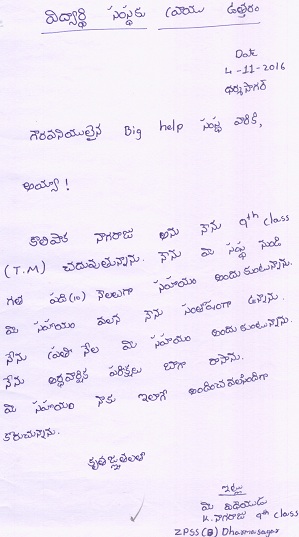 విద్యార్థి సంస్థకు వ్రాయు ఉత్తరం
Date
4-11-2016
ధర్మసాగర్
గౌరవనియులైన Big help సంస్థ వారికి,
అయ్యా!
కాలిపాక నాగరాజు అను నేను 9th class
(T.M) చదువుతున్నాను. నేను మీ సంస్థ నుండి
గత పది(10) నెలలుగా సహాయం అందుకుంటున్నాను.
మీ సహాయం వలన నేను సంతోషంగా ఉన్నాను.
నేను ప్రతి నెల మీ సహాయం అందుకుంటున్నాను.
నేను అర్ధవార్షిక పరిక్షలు బాగా రాసాను.
మీ సహాయం నాకు ఇలాగే అందించవలసిందిగా
కోరుచున్నాను.
కృతజ్ఞతలతో
ఇట్లు
మీ విధేయుడు
K. నాగరాజు 9th class
ZPSS (B) Dharmasagar